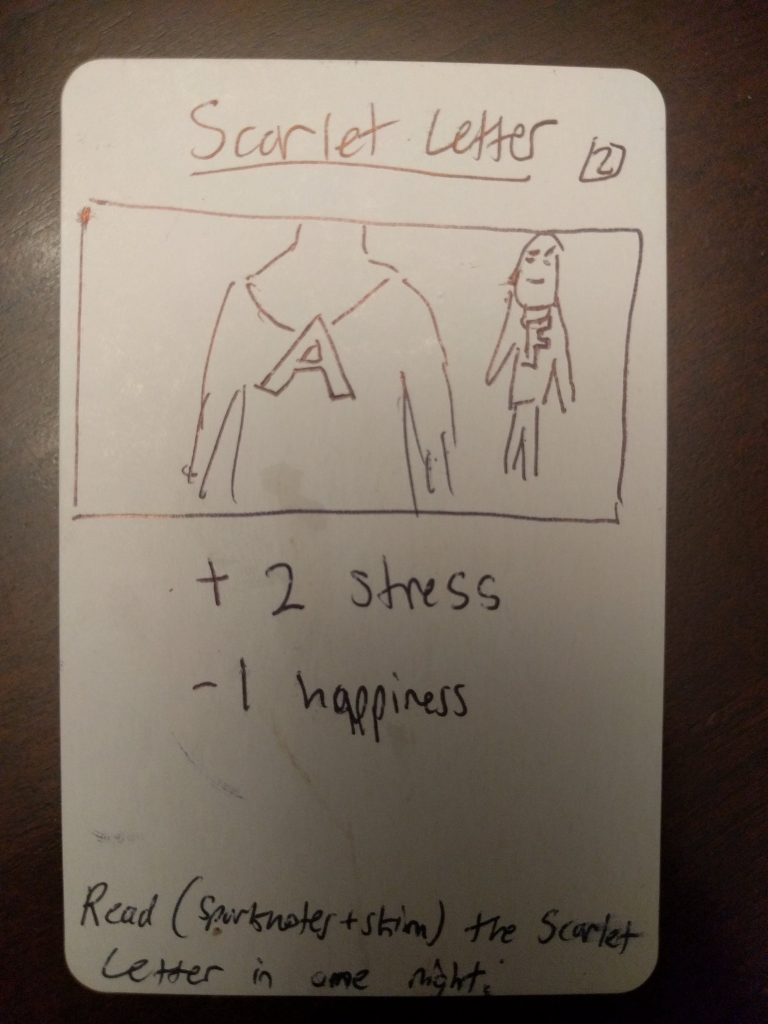 Scarlet Letter 2
A
F
+ 2 stress
- 1 happiness
Read (Sparknotes + skim) the Scarlet
Letter in one night.